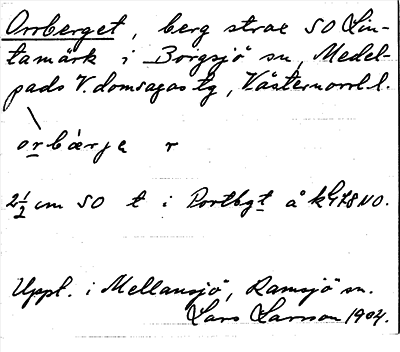 Orrberget, berg strax SO Lin-
tamärk i Borgsjö sn, Medel-
pads V. domsagas tg, Västernorrl. l.
orbärje r
2 1/2 cm SO t i Portbgt å k 478 NO.
Uppl. i Mellansjö, Ramsjö sn.
Lars Larsson 1904.